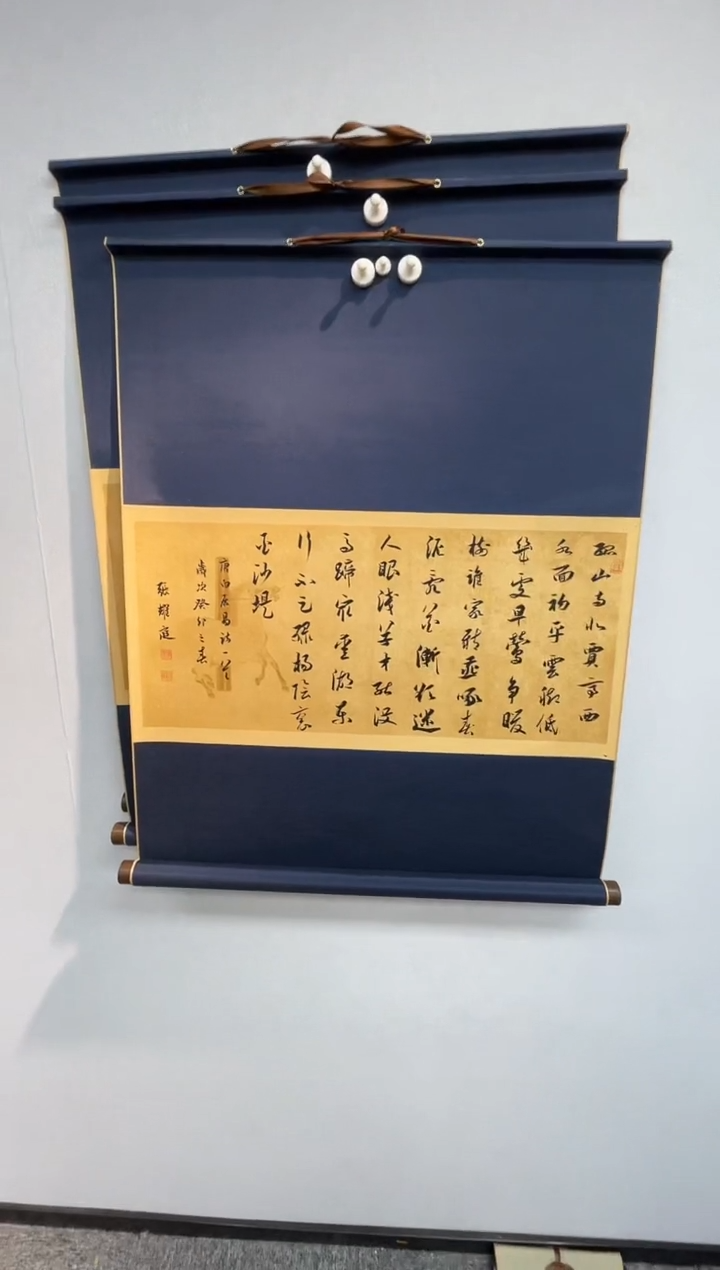 孤山寺北賈亭西
水面初平雲腳低
幾處早鶯爭暖
樹誰家新燕啄春
泥亂花漸欲迷
人眼淺草才能沒
馬蹄最愛湖東
行不足綠楊陰裏
白沙堤
唐白居易詩一首
歲次癸卯之春
張耀庭